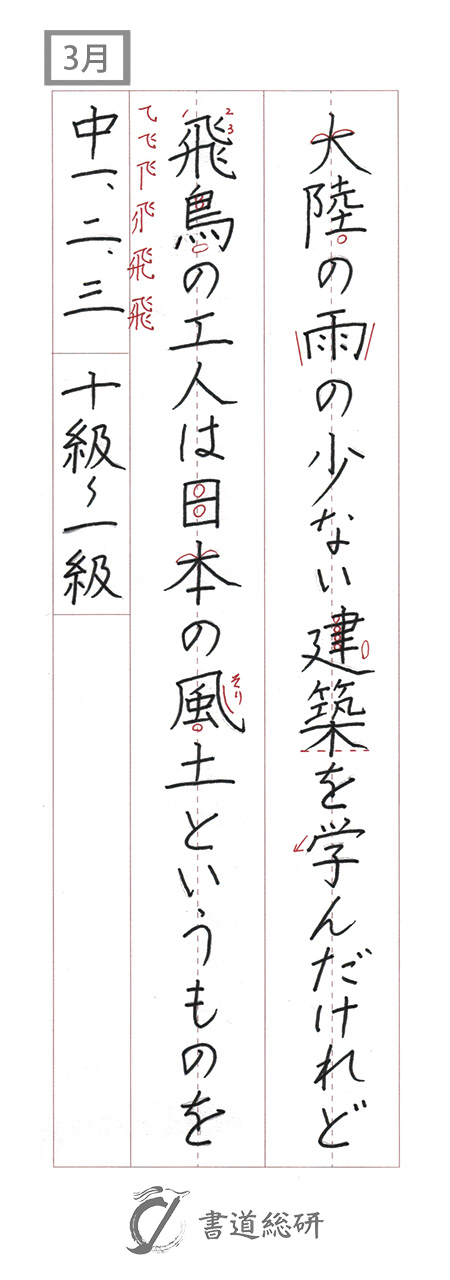 3月
大陸の雨の少ない建築を学んだけれど
飛鳥の工人は日本の風土というものを
2
3
そり
中一、二、三
十級〜一級
書道総研